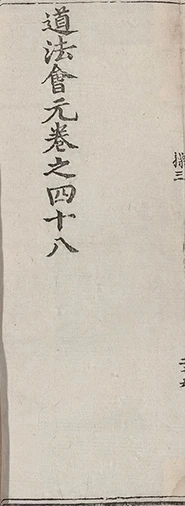 道法會元卷之四十八